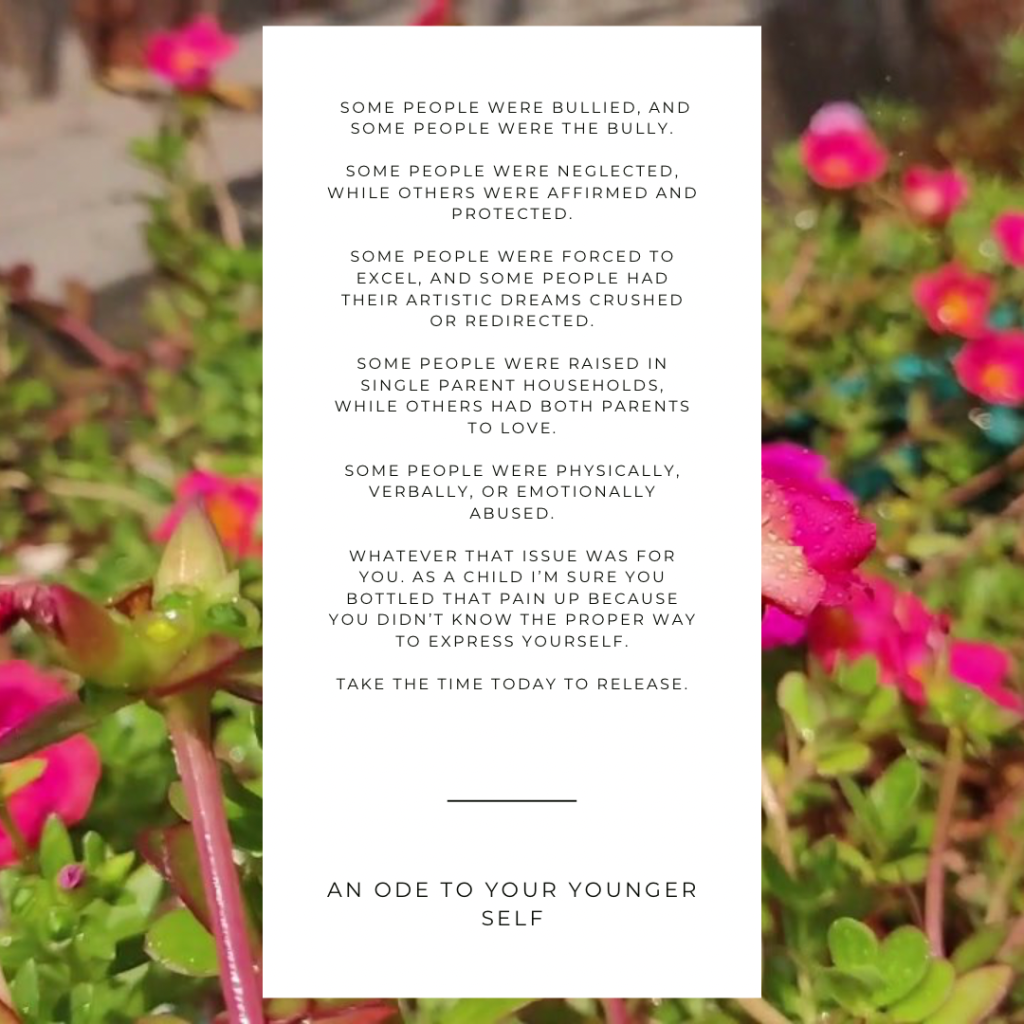 SOME PEOPLE WERE BULLIED, AND
SOME PEOPLE WERE THE BULLY.
SOME PEOPLE WERE NEGLECTED,
WHILE OTHERS WERE AFFIRMED AND
PROTECTED.
SOME PEOPLE WERE FORCED TO
EXCEL, AND SOME PEOPLE HAD
THEIR ARTISTIC DREAMS CRUSHED
OR REDIRECTED.
SOME PEOPLE WERE RAISED IN
SINGLE PARENT HOUSEHOLDS,
WHILE OTHERS HAD BOTH PARENTS
TO LOVE.
SOME PEOPLE WERE PHYSICALLY,
VERBALLY, OR EMOTIONALLY
ABUSED.
WHATEVER THAT ISSUE WAS FOR
YOU. AS A CHILD I’M SURE YOU
BOTTLED THAT PAIN UP BECAUSE
YOU DIDN’T KNOW THE PROPER WAY
TO EXPRESS YOURSELF.
TAKE THE TIME TODAY TO RELEASE.
AN ODE TO YOUR YOUNGER
SELF